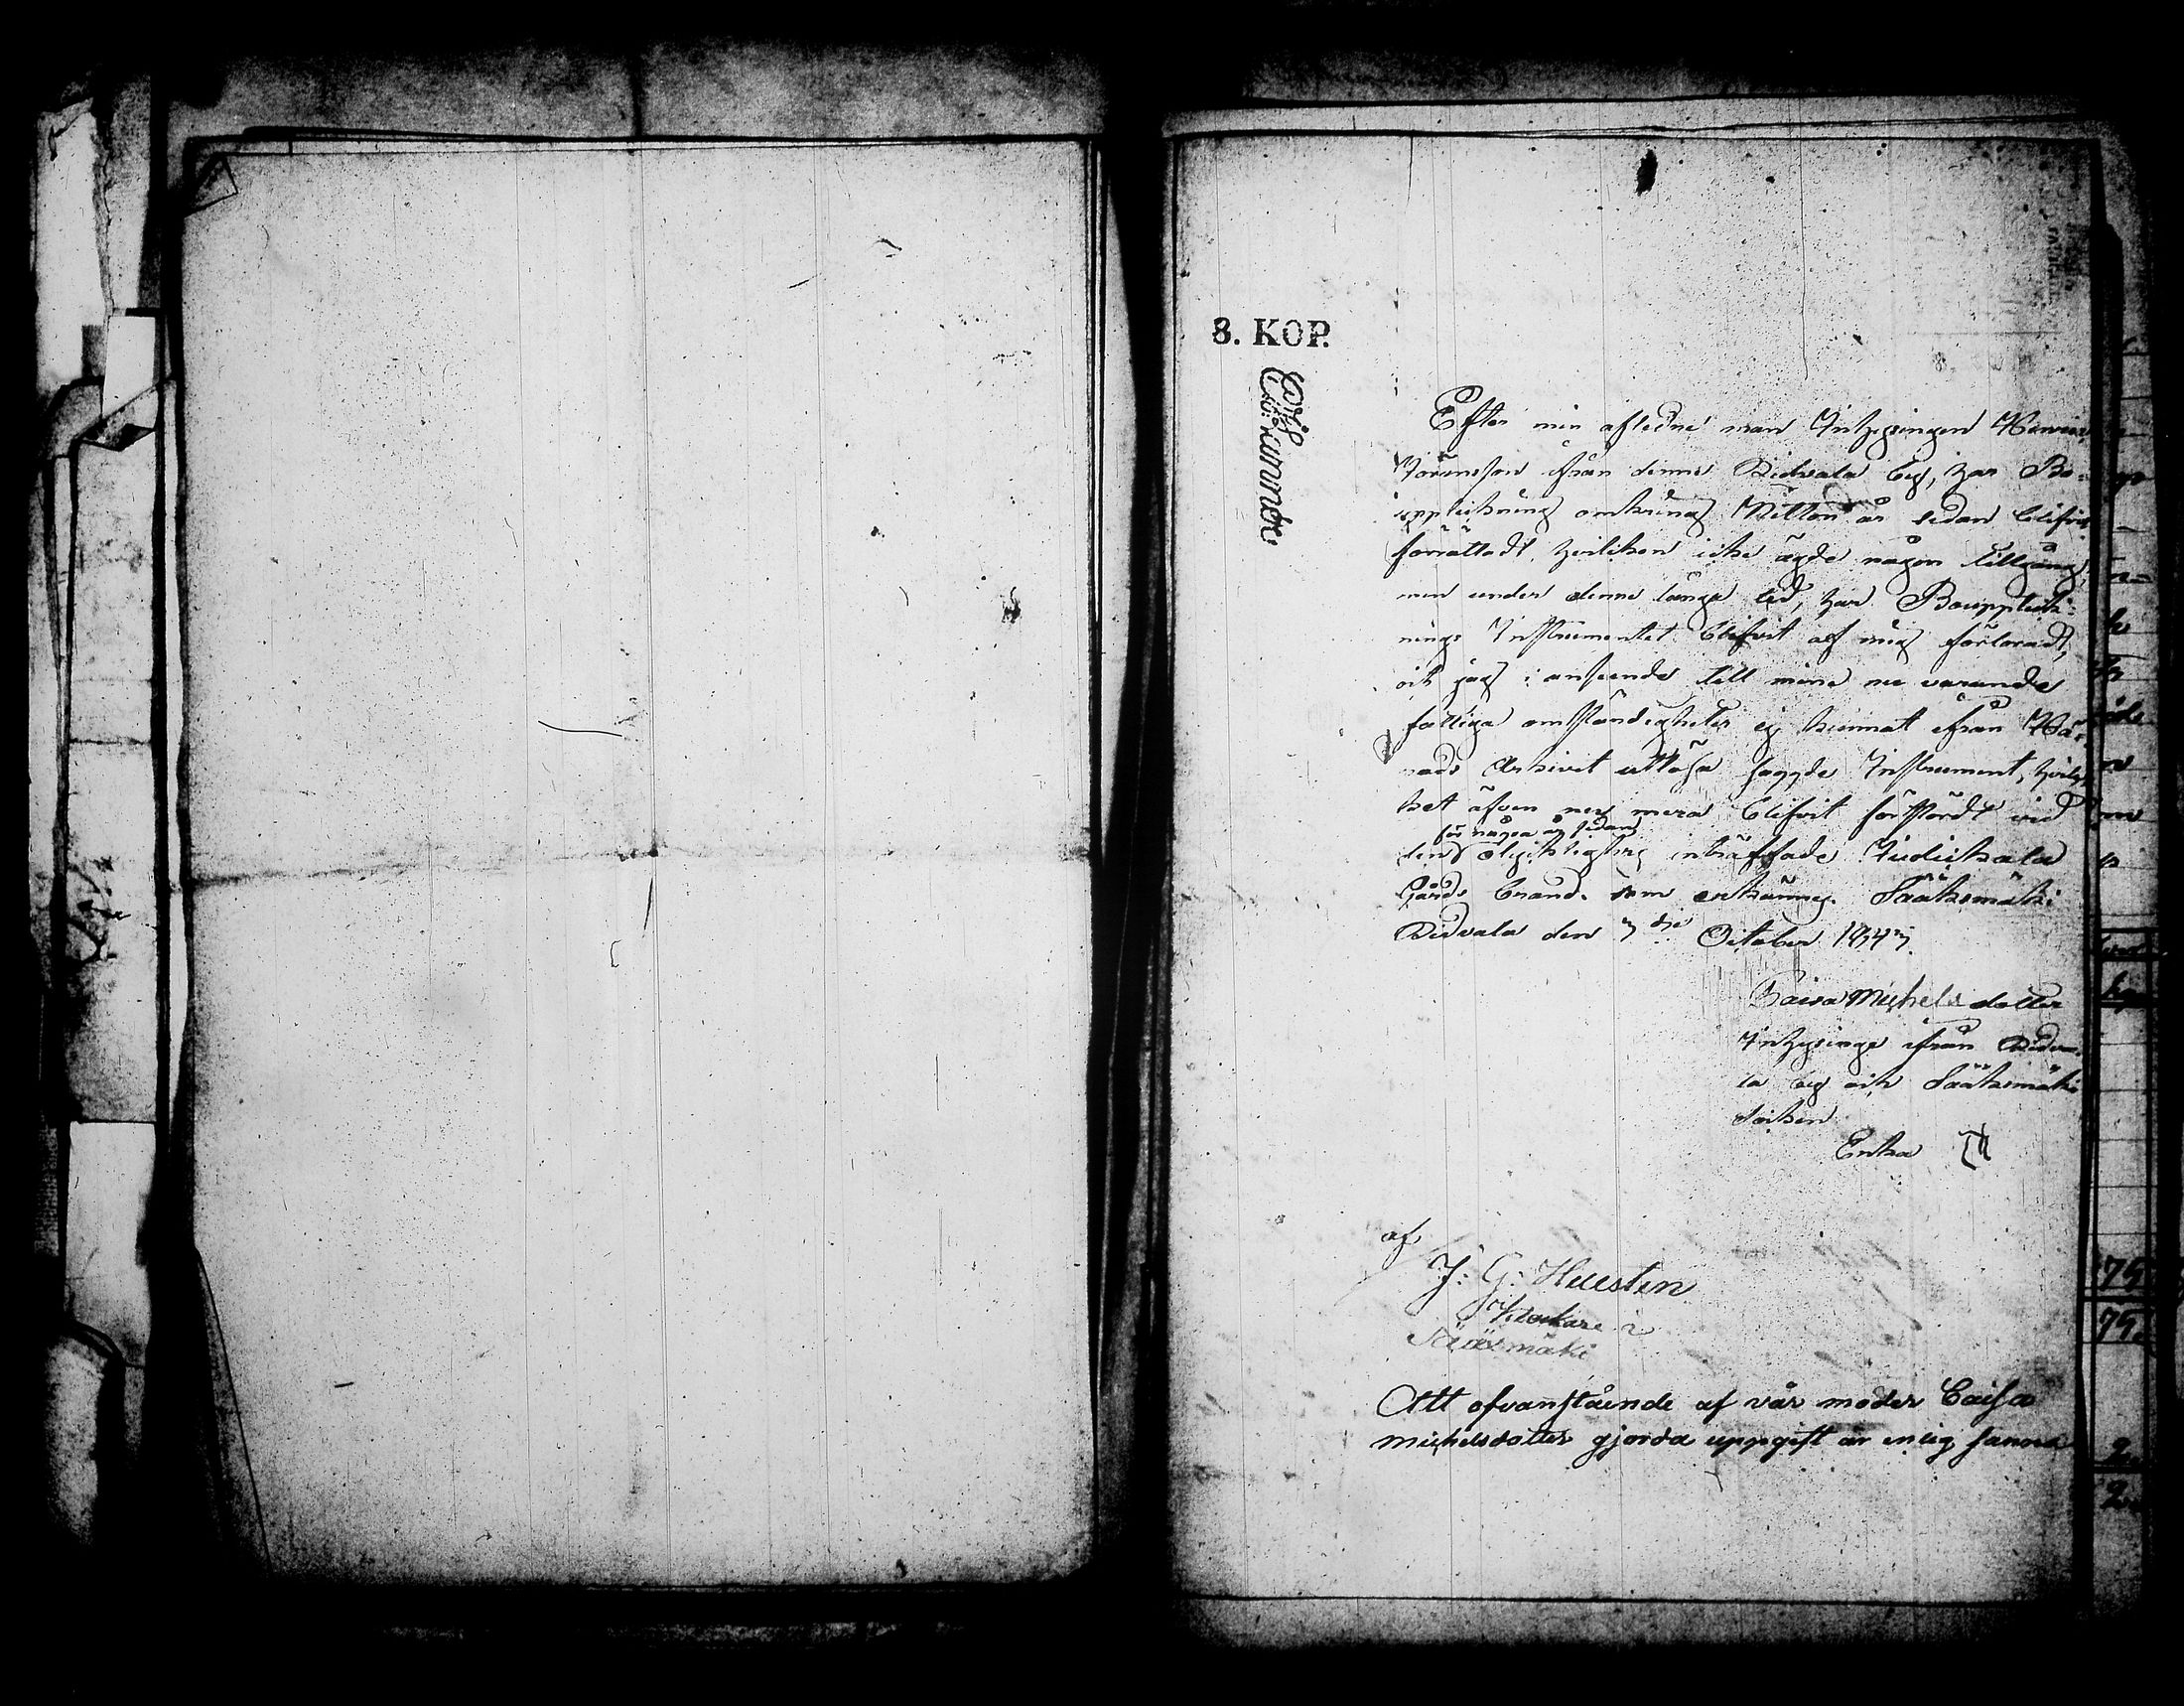 8. KOP.
Efter min afledne man Inhysingen Henric
Jöransson ifrån denne Ridvala by, har Bo-
uppteckning omkring Nitton år sedan blifvit
förrättadt, hvilken icke ägde någon tillgång,
men under denne långa tid, har Bouppteck-
nings Instrumentet blifvit af mig förloradt,
och jag i anseende till mina nu varande
fattiga omständigheter ej kunnat ifrån Hä-
rads Arkivet uttösa sagde Instrument, hvil-
ket äfven mera blifvit förstördt vid
för några år sedan
den olyckligtvis inträffade Judickala
Gårds brand. som erkännes. Sääksmäki
Ridvala den 7die October 1847.
Caisa Michels dotter
Inhysinge ifrån Ridva-
la by och Sääksmäki
Socken
Enka
af
J: G: Hueslen
Klockare i
Sääxmäki
Att ofvanstående af vår moder Caisa
Michelsdotter gjorda uppgift är enlig sanna
79
79
2
2